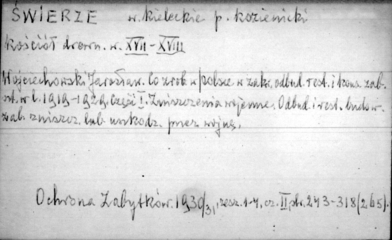 ŚWIERZE w. kieleckie p. kozienicki
kościół drewn. w. XVII-XVIII
Wojciechowski Jarosław. Co zrobiono w Polsce w zakr. odbud. rest. i kons. zab.
szt. w l. 1919-1929. Część I. Zniszczenia wojenne. Odbud. i rest. budow.
zab. zniszcz. lub uszkodz. przez wojnę.
Ochrona Zabytków. 1930/31, zesz. 1-4, cz. II, str. 243-318 (265).